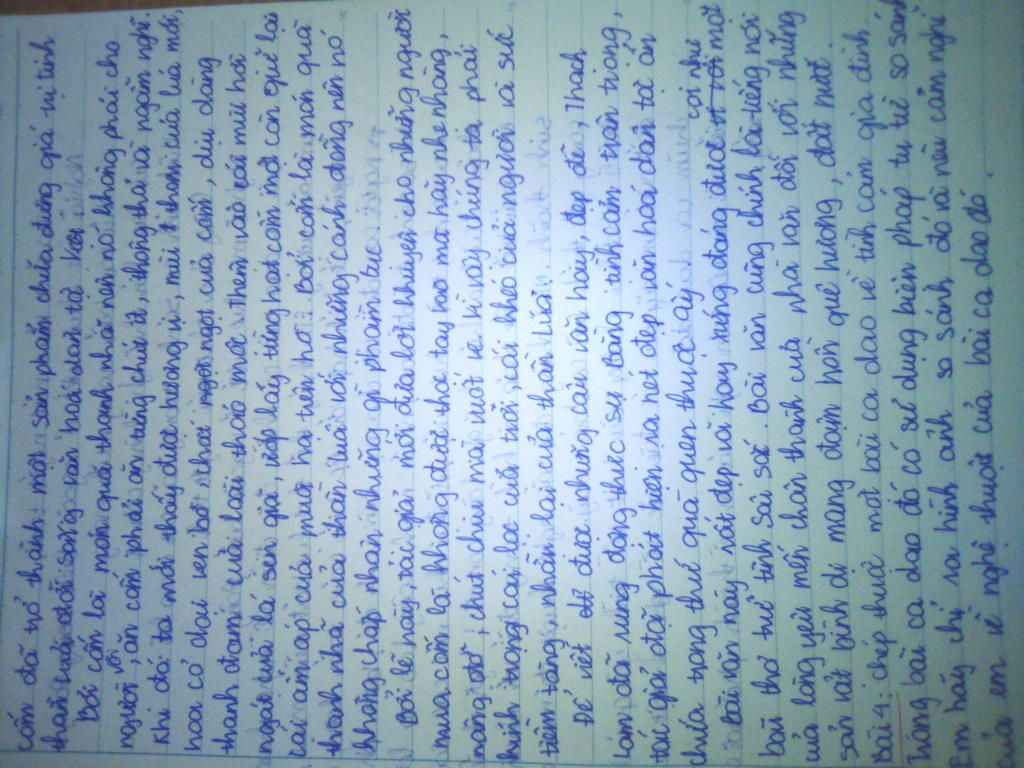 cốm đã trở thành một sản phẩm chứa đựng giá trị tinh
thần của đời sống văn hoá dân tộc
Bởi cốm là món quà thanh nhã nên nó không phải cho
người vội, ăn cốm phải ăn từng chút ít, thong thả và ngẫm nghĩ.
Khi đó ta mới thấy được hương vị, mùi thơm của lúa mới,
hoa cỏ dại ven bờ thát ngọt của cốm, dịu dàng
thanh đạm của loài thảo mộc. Thêm vào cái mùi hơi
ngát của lá sen già, ướp lấy từng hạt cốm một còn giữ lại
cái ấm áp của mùa hạ trên hồ. Bởi cốm là món quà
thanh nhã của thần lúa với những cánh đồng nên nó
không chấp nhận những gì phàm tục.
Bởi lẽ nay, tác giả mới đưa lời khuyên cho những người
mua cốm là không được thọc tay vào mà hãy nhẹ nhàng,
nâng đỡ, chút chiu mà vuốt ve. Vì vậy chúng ta phải
kính trọng cái lộc của trời, cái khéo của người và sức
tiềm tàng, nhẫn nại của thần Lúa.
Để viết được những câu văn hay, đẹp đẽ, Thạch
Lam đã rung động thực sự bằng tình cảm trân trọng,
tác giả đã phát hiện ra nét đẹp văn hoá dân tộc ẩn
chứa trong thứ quà quen thuộc ấy.
Bài văn này rất đẹp và hay xứng đáng được coi như một
bài thơ trữ tình sâu sắc. Bài văn cũng chính là tiếng nói
của lòng yêu mến chân thành của nhà văn đối với những
sản vật bình dị mang đậm hồn quê hương, đất nước.
Bài 4: chép thuộc một bài ca dao về tình cảm gia đình.
Trong bài ca dao đó có sử dụng biện pháp tu từ so sánh
Em hãy chỉ ra hình ảnh so sánh đó và nêu cảm nghĩ
của em về nghệ thuật của bài ca dao đó.